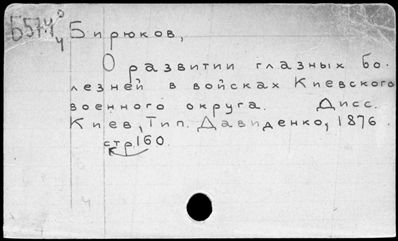 Б574 0/4
Бирюков,
О развитии глазных бо-
лезней в войсках Киевского
военного округа. Дисс.
Киев, Тип. Давиденко, 1876.
стр 160.